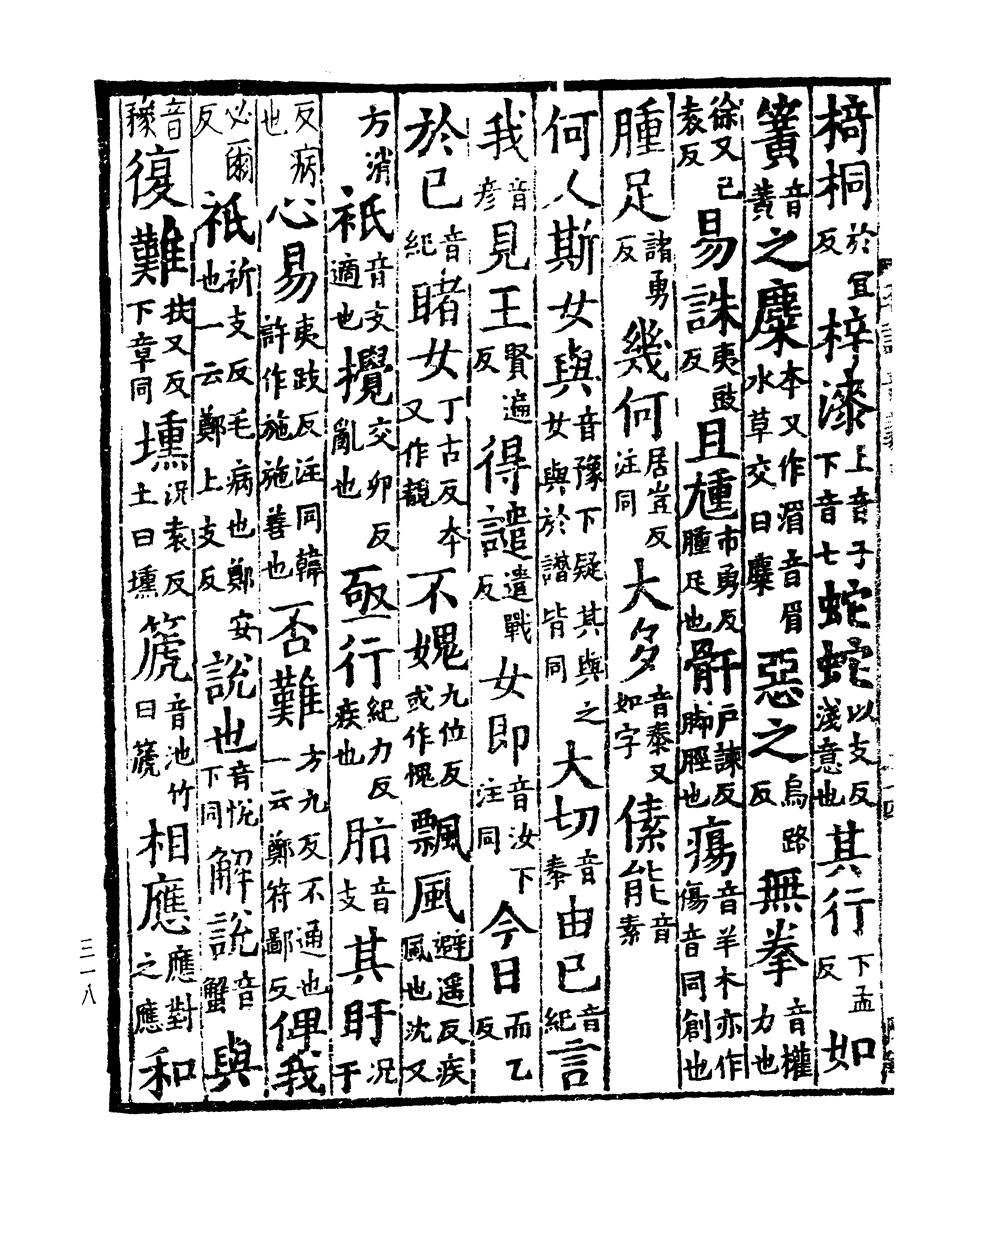 椅桐於宜反梓漆上音子下音七蛇蛇以支反淺意也其行下孟反如
簧音黃之麋本又作湄音眉水草交曰麋惡之烏路反無拳音權力也
徐又己袁反易誅夷豉反且尰市勇反腫足也骭戶諫反脚脛也瘍音羊本亦作傷音同創也
腫足諸勇反幾何居豈反注同大多音泰又如字傃能音素
何人斯女與音豫下疑其與之女與於譖皆同大切音泰由已音紀言
我音彥見王賢遍反得譴遣戰反女即音汝下注同今日而乙反
於已音紀睹女丁古反本又作覩不媿九位反或作愧飄風避遥反疾風也沈又
方消祇音支適也攪交卯反亂也亟行紀力反疾也脂音支其盱況于
反病也心易夷豉反注同韓詩作施施善也否難方九反不通也一云鄭符鄙反俾我
必爾反祇祈支反毛病也鄭安也一云鄭上支反說也音悅下同解說音蟹與
音豫復難扶又反下章同壎況袁反土曰壎篪音池竹曰篪相應應對之應和
三一八